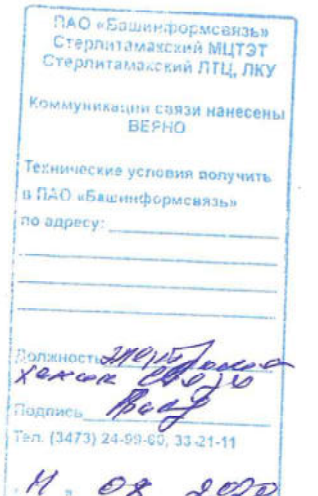 ПАО «Башинформсвязь»
Стерлитамакский МЦТЭТ
Стерлитамакский ЛТЦ, ЛКУ
Коммуникации связи нанесены
ВЕРНО
Технические условия получить
в ПАО «Башинформсвязь»
по адресу:
Должность
связи
Подпись
Тел. (3473) 24-99-60, 33-21-11
08